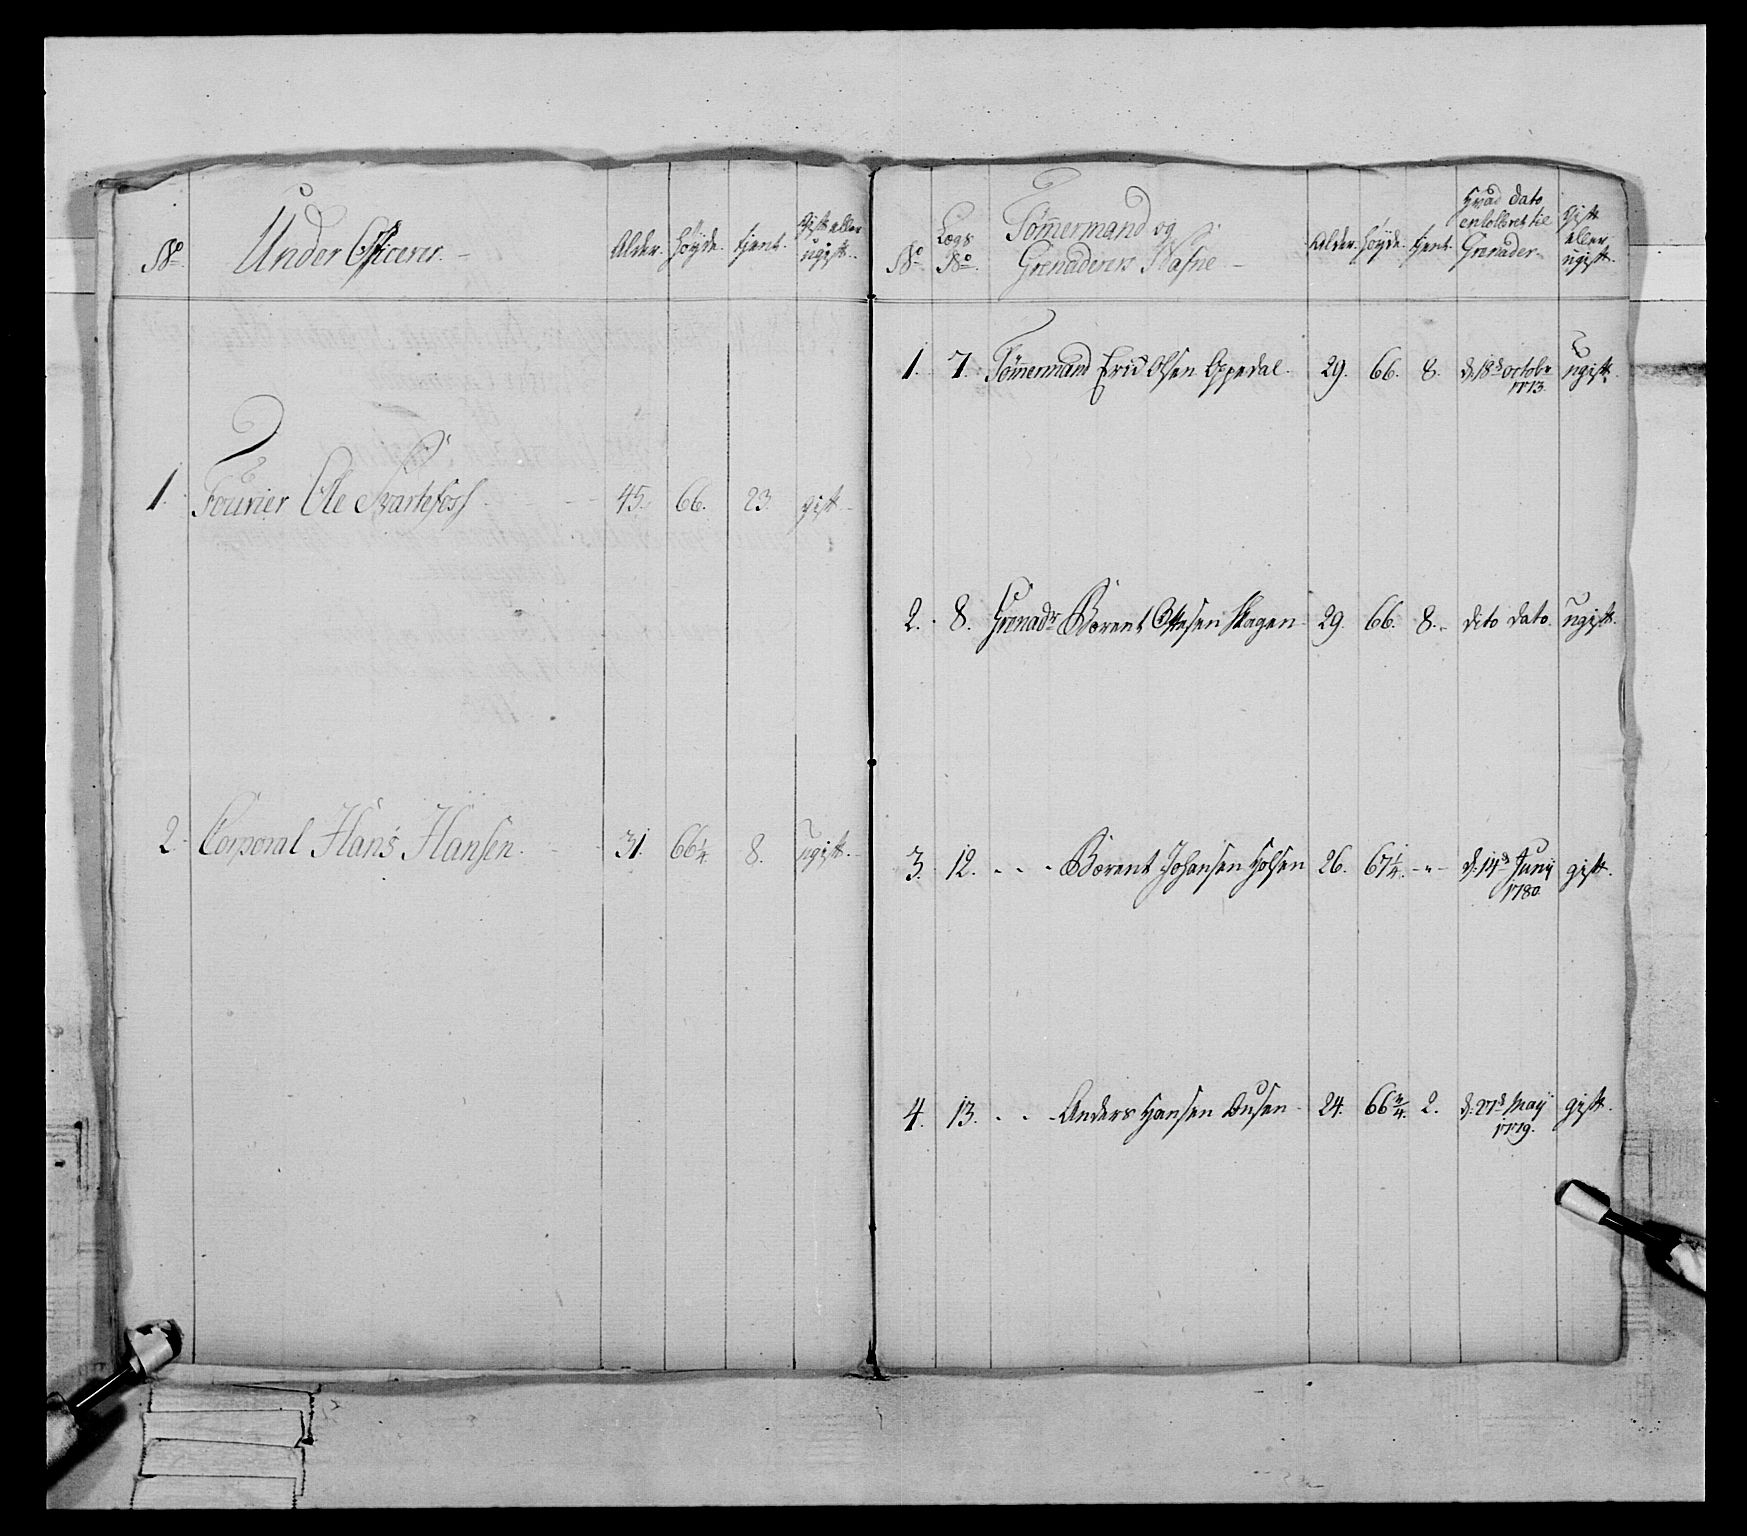 No Under Officerer. Alder. Höyde. tjent. Gift eller ugift.
1. Fourier Ole Svartefoss 45. 66. 23. gift
2. Corporal Hans Hansen. 31. 66 1/4. 8. ugift.
No Lægs No Tömmermand og Grenaderers Nafne Alder. höyde. tjent. Hvad dato enrolleret til Grenader. Gift eller ugift.
1. 7. Tömmermand Erich Olsen Oppedal. 29. 66. 8. d: 18d octobr 1773. ugift.
2. 8. Grenadr Bærent Ottesen Skagen 29. 66. 8. dito dato. ugift.
3. 12. - - - Bærent Johansen Holsen 26. 67 1/4. - " - d: 14d Junij 1780. gift.
4. 13. - - - Anders Hansen Ousen 24. 66 3/4. 2. d: 27d Maij 1779. gift.